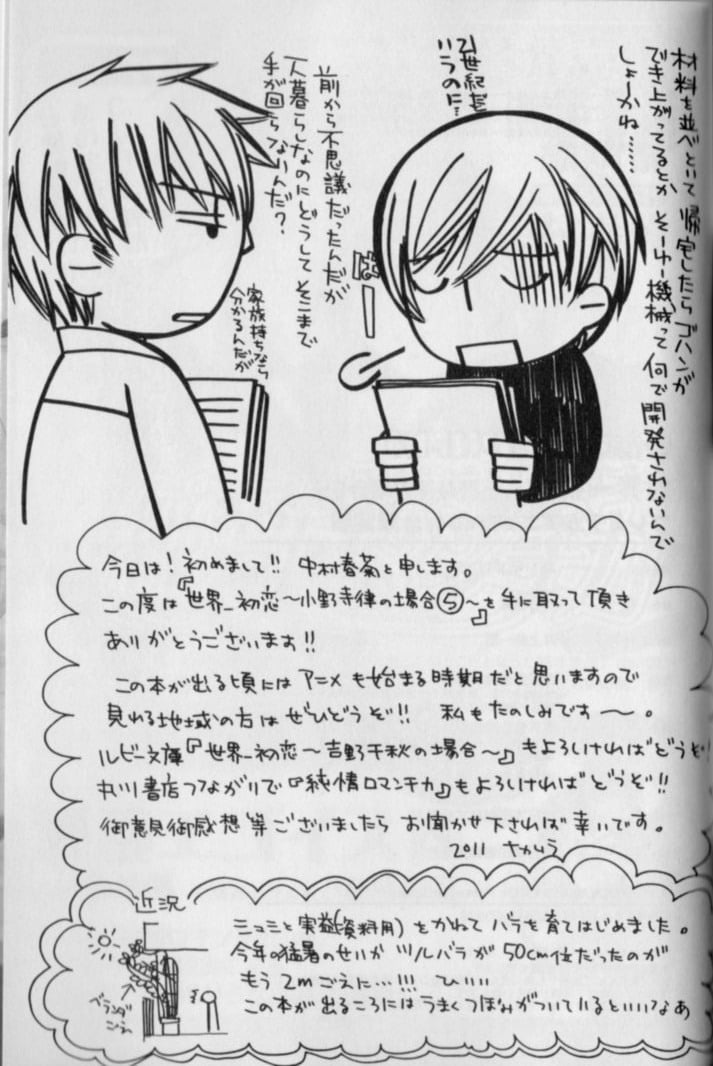 材料を並べといて帰宅したらゴハンが
でき上がってるとか そーゆー機械って何で開発されないんで
しょーかね……
21世紀だ
いうのに…
ほ
ー
前から不思議だったんだが
一人暮らしなのにどうしてそこまで
手が回らないんだ?
家族持ちなら
分かるんだが
今日は！初めまして!! 中村春菊と申します。
この度は『世界一初恋〜小野寺律の場合⑤〜』を手に取って頂き
ありがとうございます!!
この本が出る頃にはアニメも始まる時期だと思いますので
見れる地域の方はぜひどうぞ!! 私もたのしみです〜。
ルビー文庫『世界一初恋〜吉野千秋の場合〜』もよろしければどうぞ!
丸川書店つながりで『純情ロマンチカ』もよろしければどうぞ!!
御意見御感想等ございましたらお聞かせ下されば幸いです。
2011 なかむら
近況
シュミと実益(資料用)をかねてバラを育てはじめました。
今年の猛暑のせいかツルバラが50cm位だったのが
もう2mごえに…!!! ひいい
この本が出るころにはうまくつぼみがついているといいなあ
ベランダ
ごえ